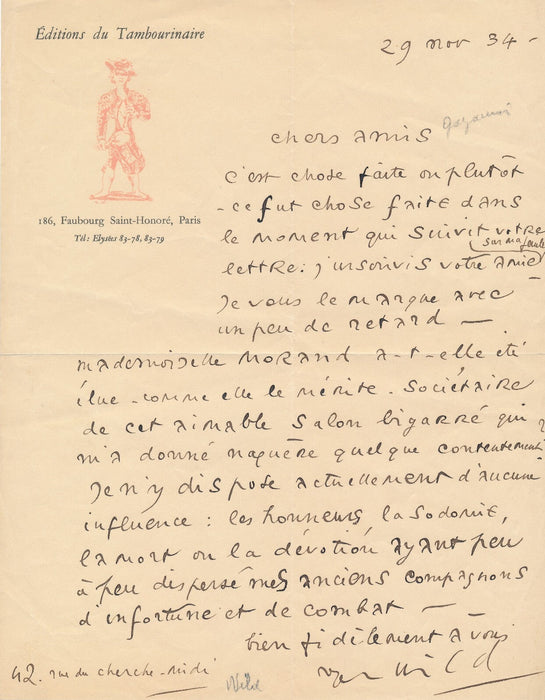 Éditions du Tambourinaire
29 nov 34 -
186, Faubourg Saint-Honoré, Paris
Tél : Elysées 83-78, 83-79
chers amis
c'est chose faite ou plutôt
- ce fut chose faite dans
le moment qui suivit votre
sur ma feuille
lettre : j'inscrivis votre amie
Je vous le marque avec
un peu de retard —
mademoiselle MORAND a-t-elle été
élue - comme elle le mérite - Sociétaire
de cet aimable Salon bigarré qui
m'a donné naguère quelque contentement
Je n'y dispose actuellement d'aucune
influence : les honneurs, la sodomie,
la mort ou la dévotion ayant peu
à peu dispersé mes anciens compagnons
d'infortune et de combat —
bien fidèlement à vous
42. rue du cherche-midi
Wild